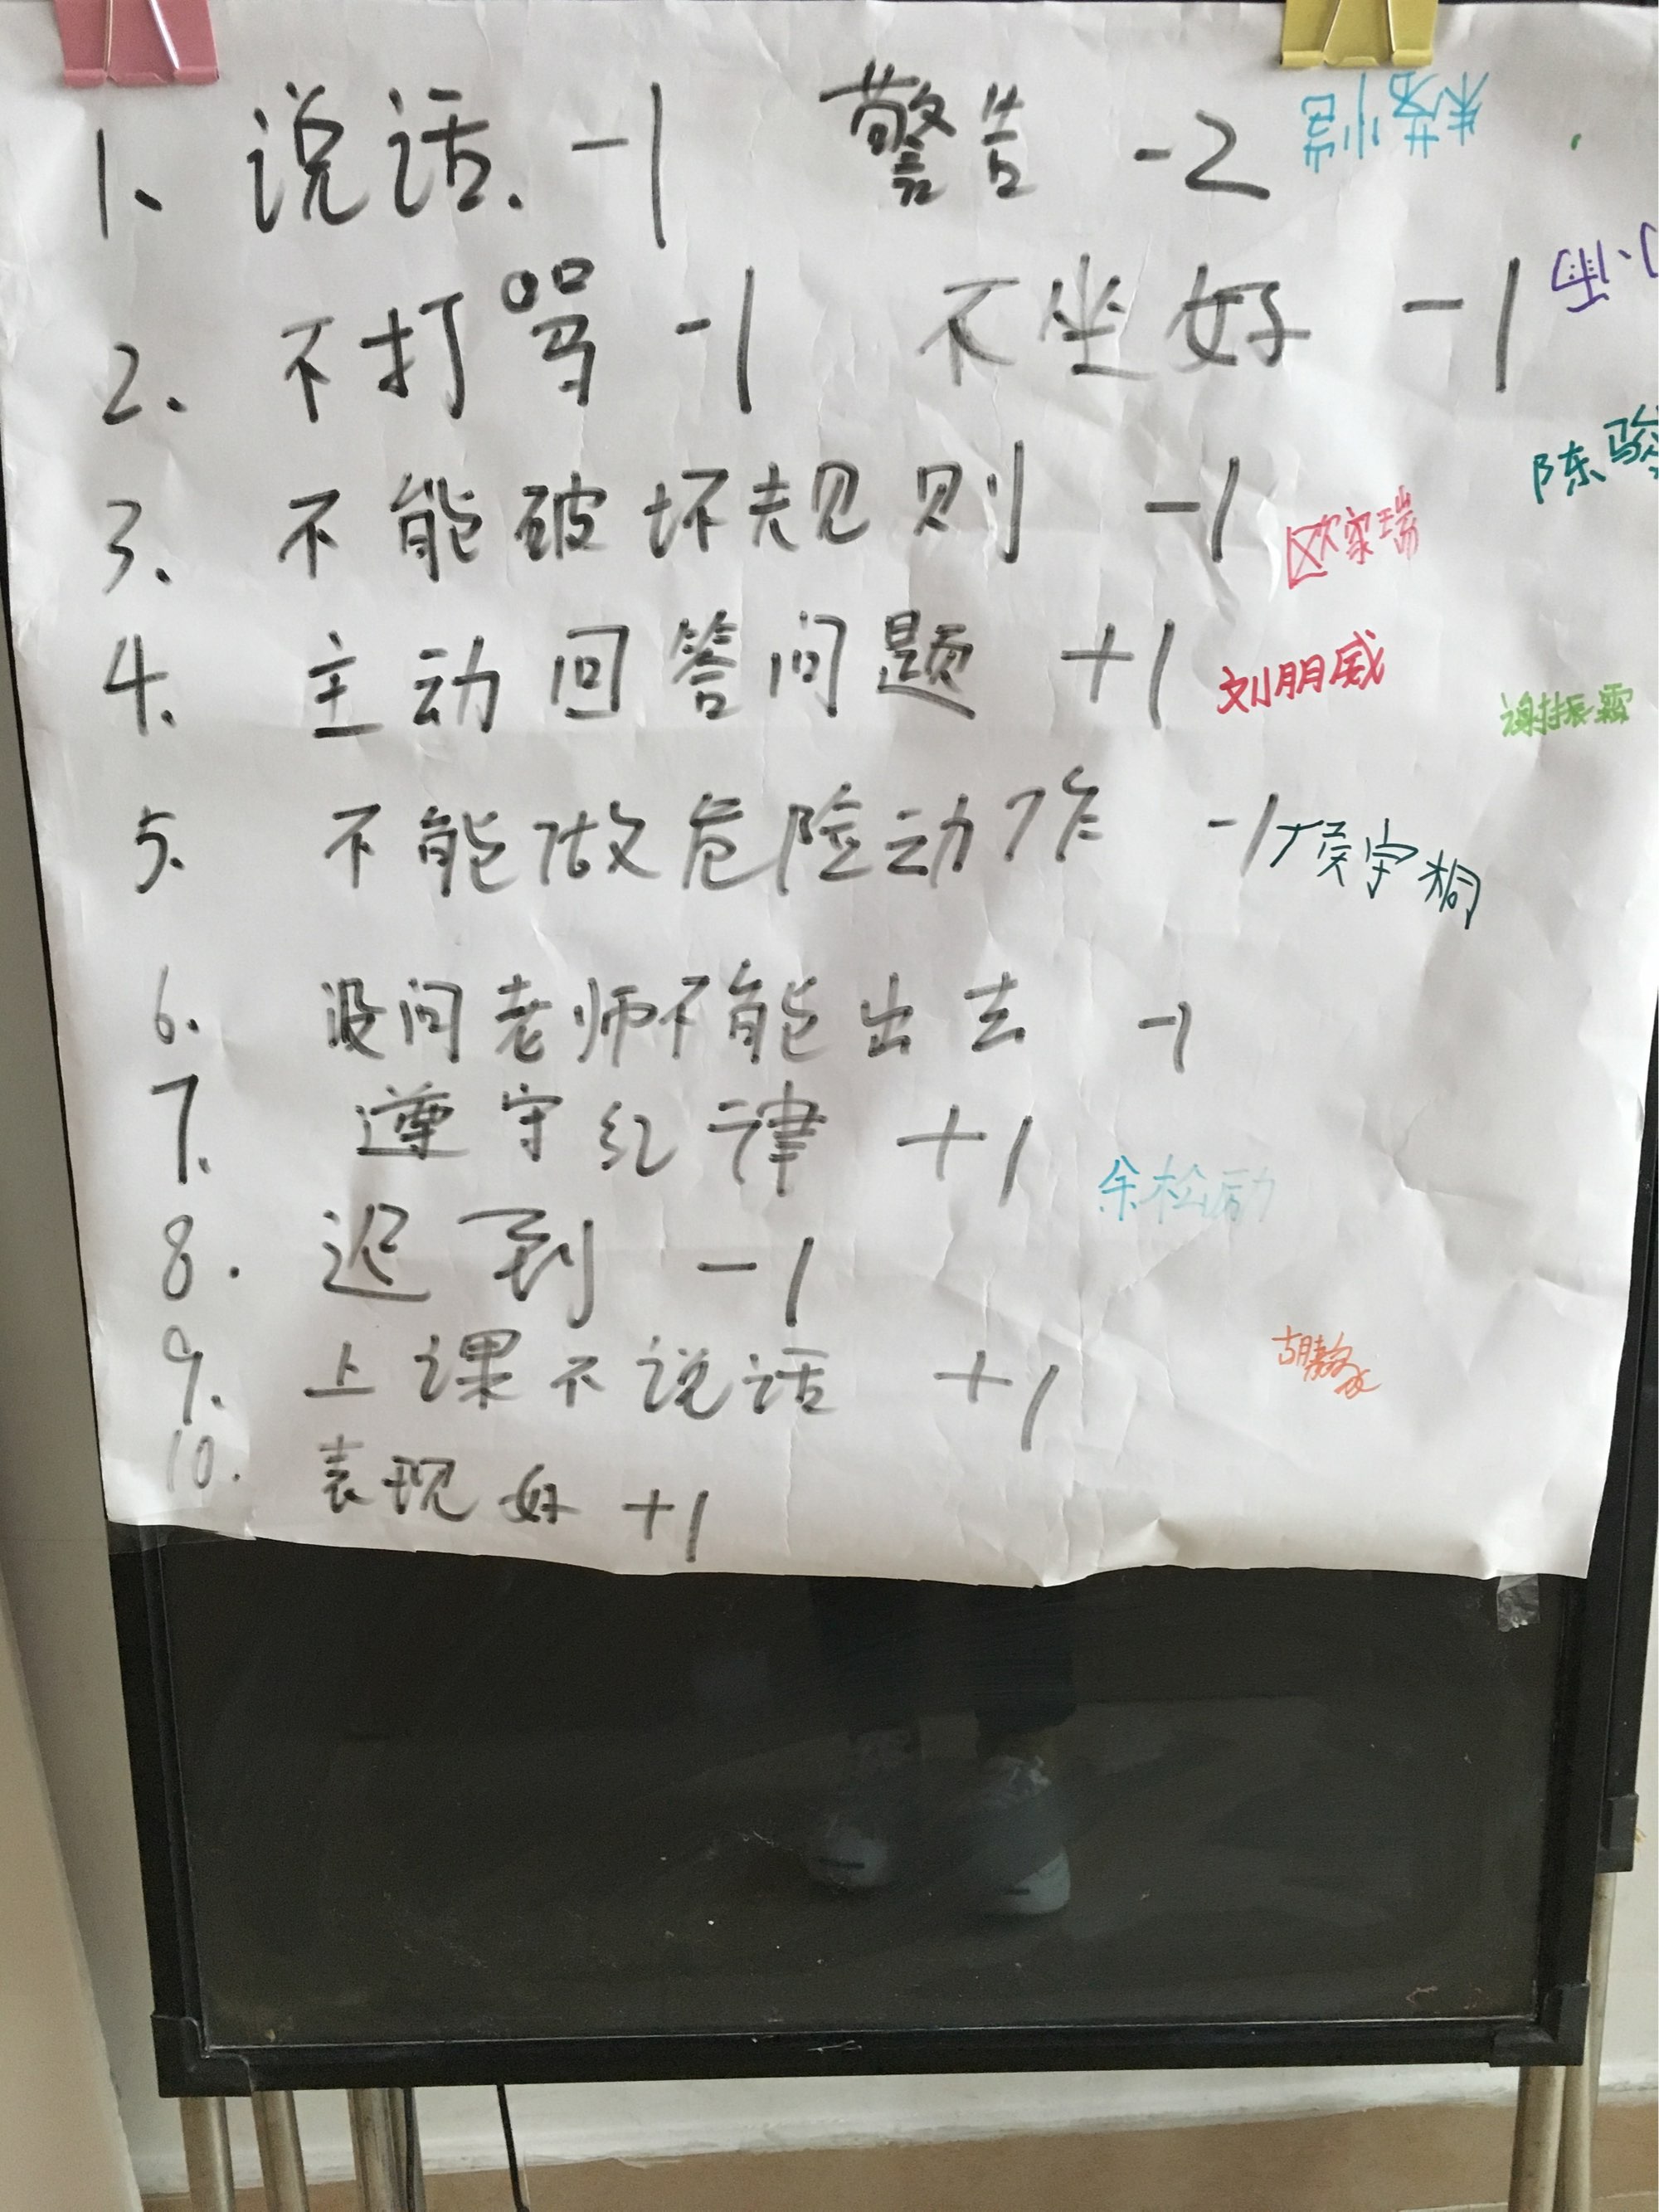 1、说话. -1 警告 -2
2. 不打骂 -1 不坐好 -1
陈骏
3. 不能破坏规则 -1 欧家瑞
4. 主动回答问题 +1 刘朋威
谢振霖
5. 不能做危险动作 -1 侯宇桐
6. 没问老师不能出去 -1
7. 遵守纪律 +1
余松励
8. 迟到 -1
9. 上课不说话 +1
10. 表现好 +1